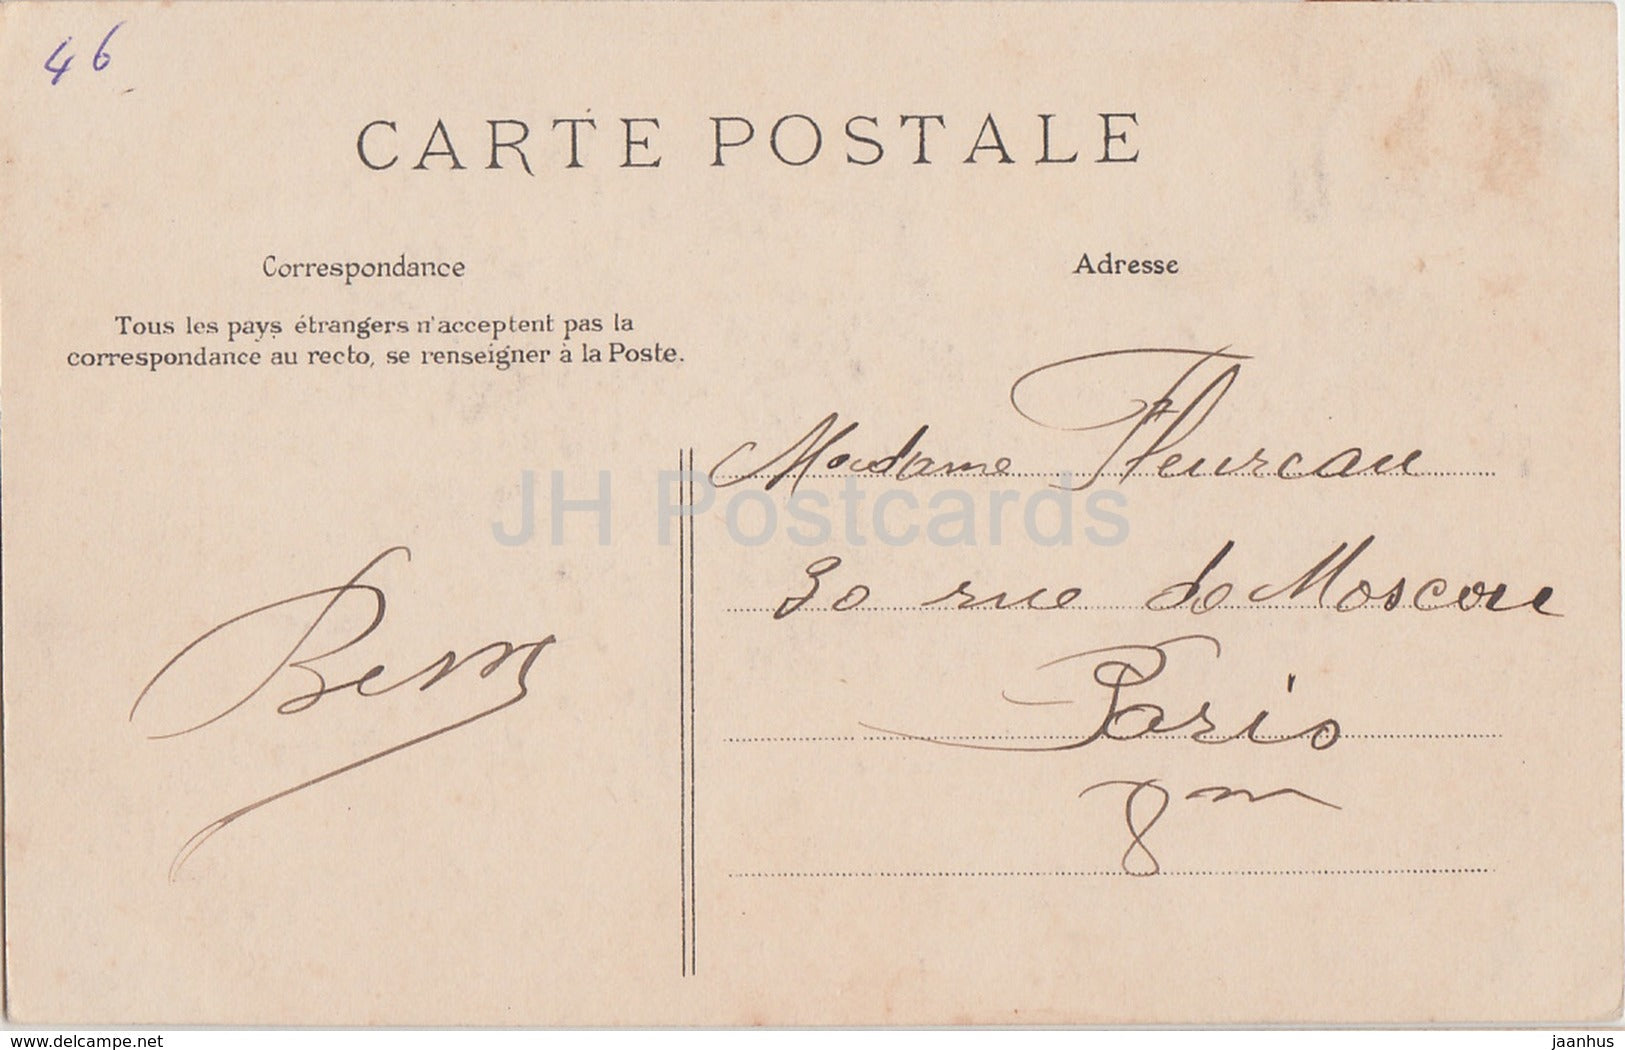 46
CARTE POSTALE
Correspondance
Tous les pays étrangers n'acceptent pas la
correspondance au recto, se renseigner à la Poste.
Adresse
Madame Fleureau
30 rue de Moscou
Paris
8me
JH Postcards
www.delcampe.net
jaanhus